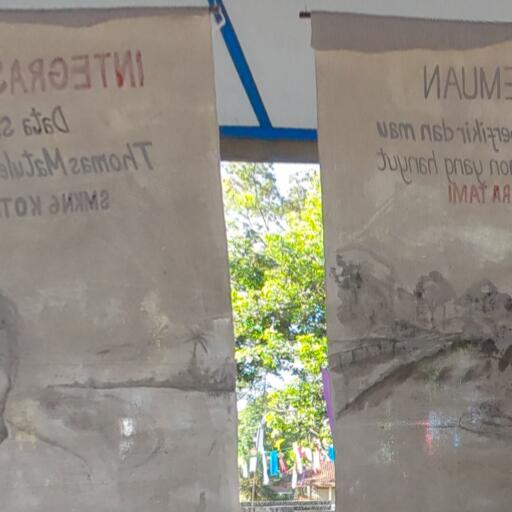 INTEGRAS
Data s
Thomas Matule
SMKN6 KOT
EMUAN
berfikir dan mau
hon yang hanyut
RA TAMI